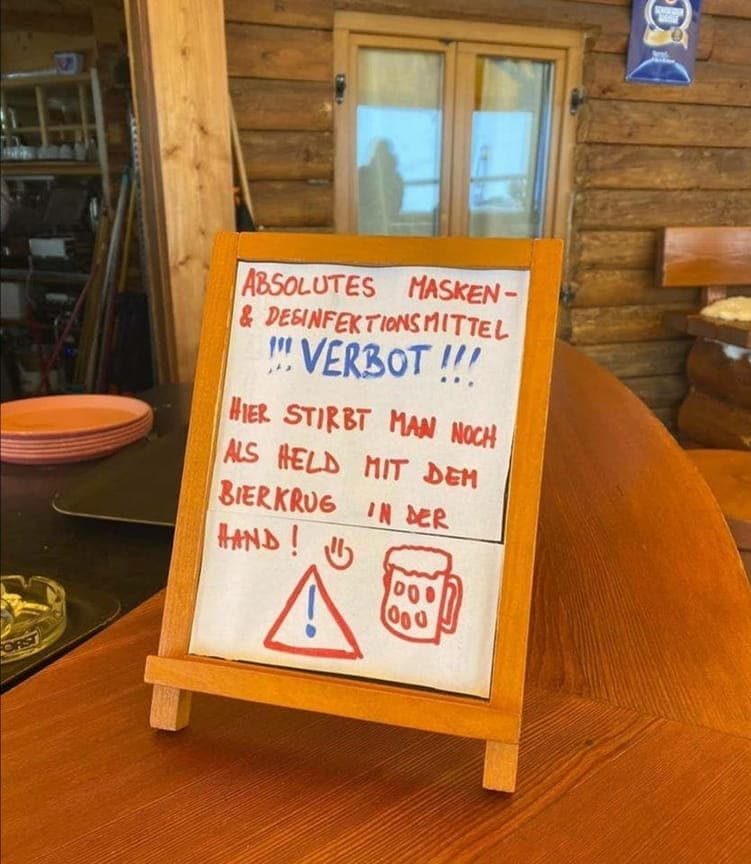 ABSOLUTES MASKEN-
& DESINFEKTIONSMITTEL
!!! VERBOT !!!
HIER STIRBT MAN NOCH
ALS HELD MIT DEM
BIERKRUG IN DER
HAND!
!